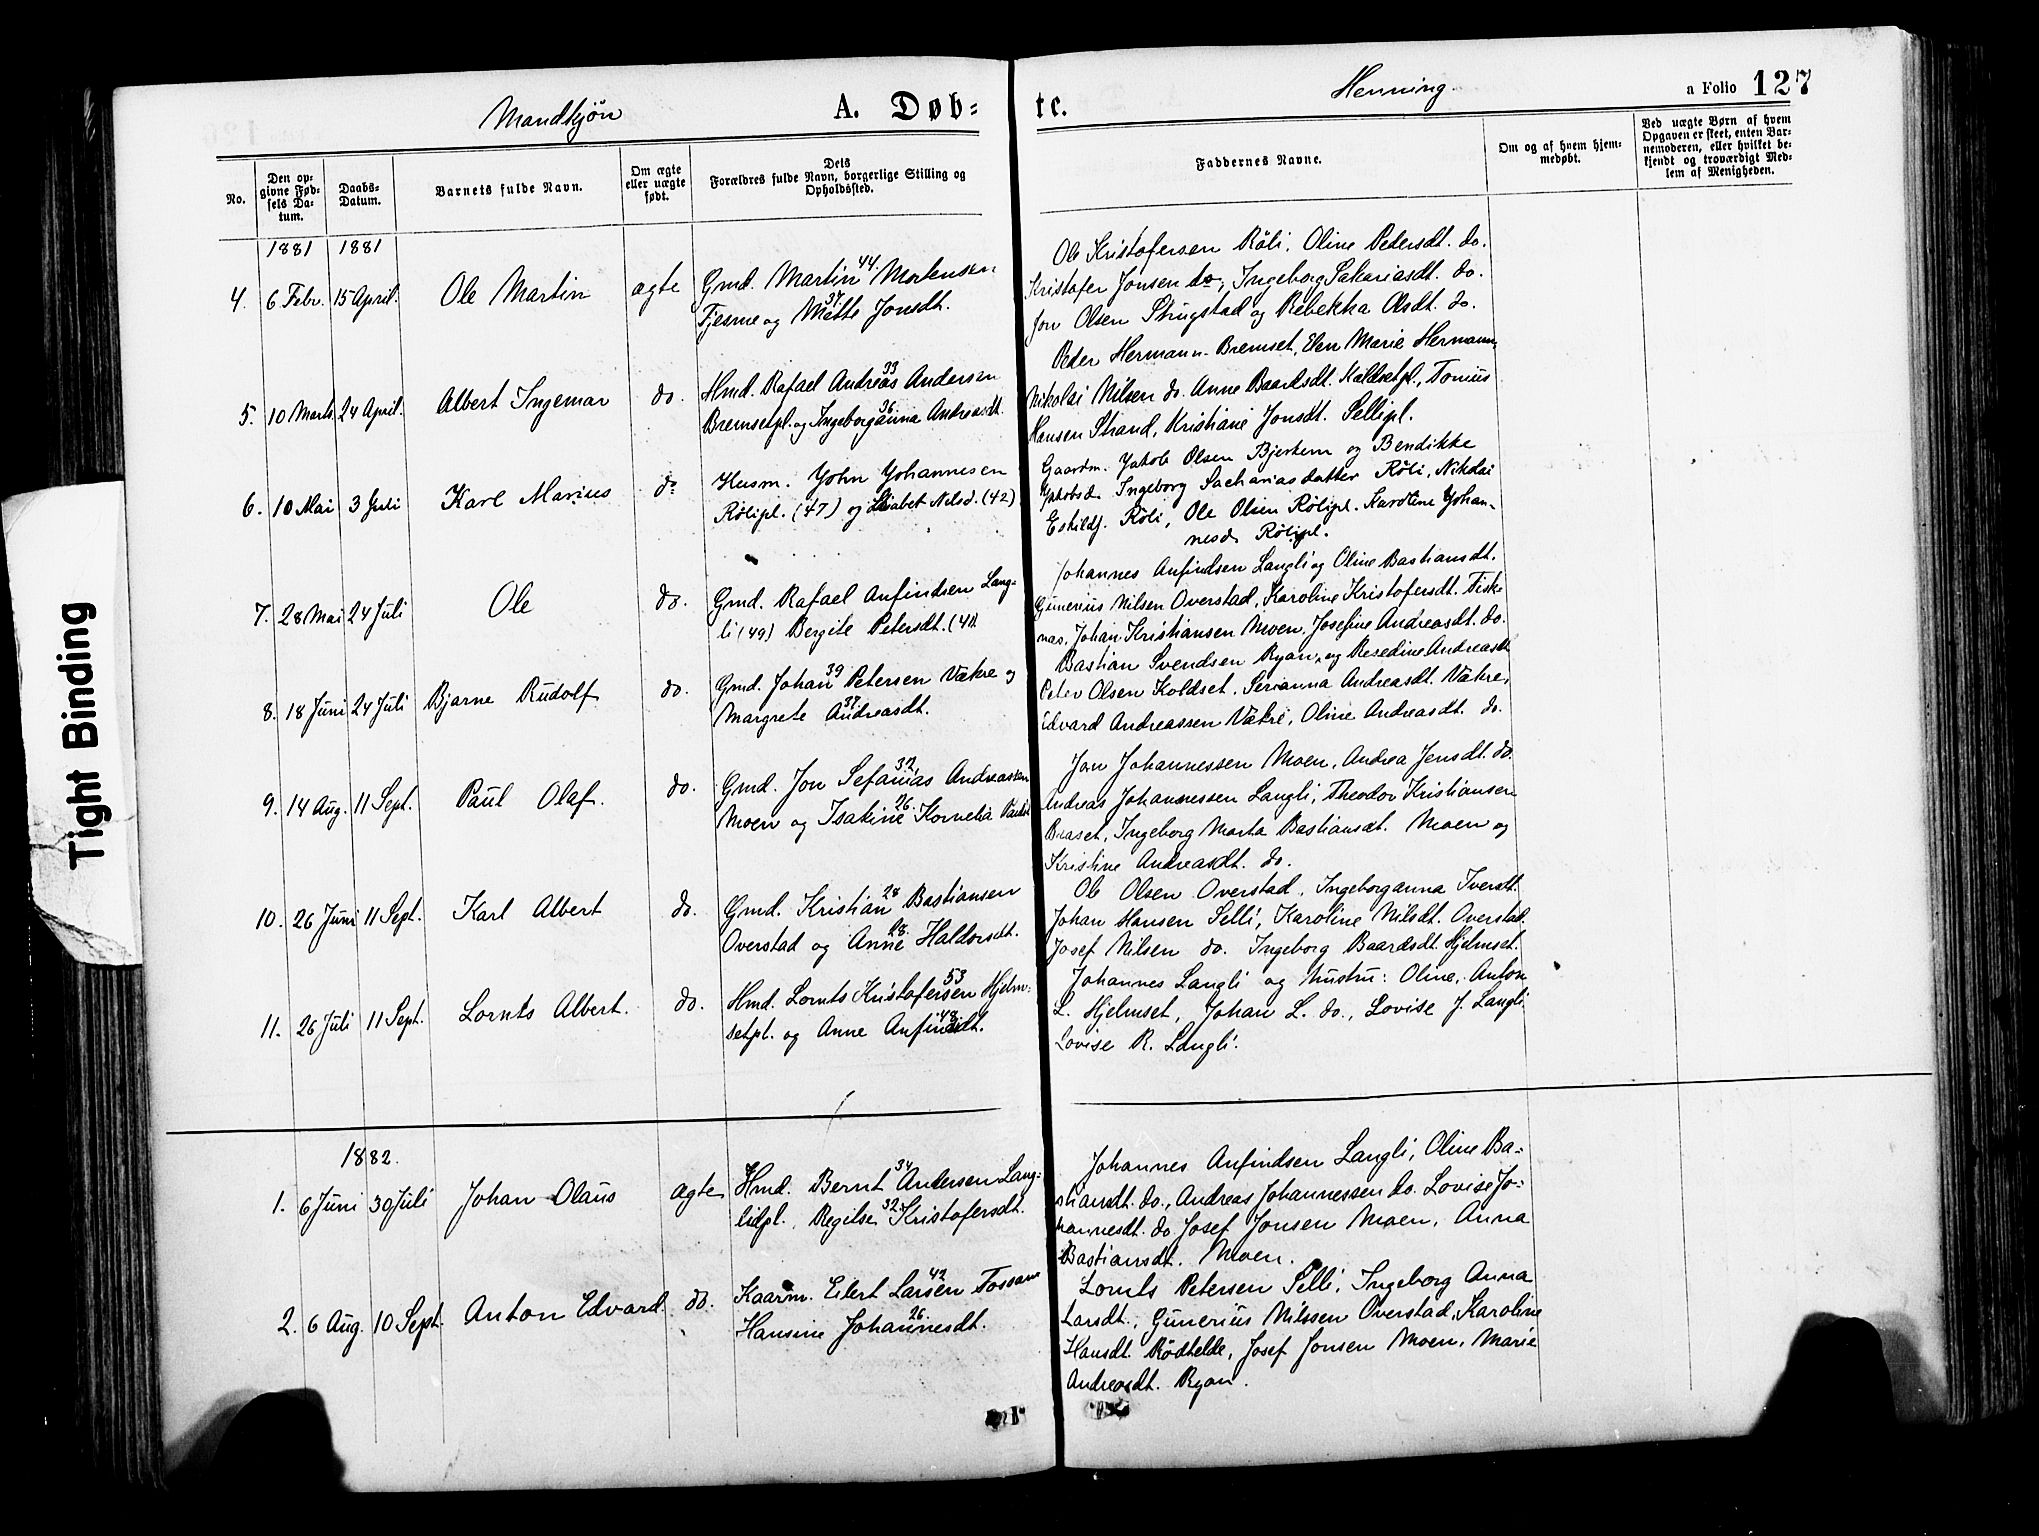 Mandkjøn
A. Døb-
te.
Henning.
a Folio 127
No.
Den op-
givne Fød-
sels Da-
tum.
Daabs-
Datum.
Barnets fulde Navn.
Om ægte
eller uægte
født.
Dets
Forældres fulde Navn, borgerlige Stilling og
Opholdssted.
Faddernes Navne.
Om og af hvem hjem-
medøbt.
Ved uægte Børn af hvem
Opgaven er skeet, enten Bar-
nemoderen, eller hvilket be-
kjendt og troværdigt Med-
lem af Menigheden.
1881 1881
4. 6 Febr. 15 April. Ole Martin ægte Gmd. Martin 44 Mortensen
Fjesme og Mette 37 Jonsdt.
Ole Kristofersen Röli, Oline Pedersdt. do.
Kristofer Jonsen do, Ingeborg Sakariasdt. do.
Jon Olsen Strugstad og Rebekka Olsdt. do.
5. 10 Marts 24 April. Albert Ingemar do. Hmd. Rafael Andreas 33 Andersen
Bremsetpl. og Ingeborganna 36 Andreasdt.
Peder Hermann. Bremset, Elen Marie Hermann.
Nikolai Nilsen do. Anne Baardsdt. Koldsetpl., Tonius
Hansen Strand, Kristiane Jonsdt. Sellipl.
6. 10 Mai 3 Juli Karl Marius do Husm. John Johannesen
Rölipl. (47) og Elisabet Nilsd. (42)
Gaardm. Jakob Olsen Bjerkem og Bendikke
Jakobsd. Ingeborg Sachariasdatter Röli, Nikolai
Eskildj. Röli, Ole Olsen Rölipl. Karoline Johan-
nesd. Rölipl.
7. 28 Mai 24 Juli Ole do. Gmd. Rafael Anfindsen Lang-
li (49) Bergite Petersdt. (41)
Johannes Anfindsen Langli og Oline Bastiansdt.
Gunerius Nilsen Overstad, Karoline Kristofersdt. Fiske
nas. Johan Kristiansen Moen, Josefine Andreasdt. do.
8. 18 Juni 24 Juli Bjarne Rudolf do. Gmd. Johan 39 Petersen Vækre og
Margrete 37 Andreasdt.
Bastian Svendsen Ryan, og Resedine Andreasdt
Peter Olsen Koldset, Serianna Andreasdt. Vækre,
Edvard Andreassen Vækre, Oline Andreasdt. do.
9. 14 Aug. 11 Sept. Paul Olaf. do. Gmd. Jon Sefanias 32 Andreassen
Moen og Isakine 26 Kornelia
Jon Johannessen Moen, Andrea Jensdt. do
Andreas Johannessen Langli, Theodor Kristiansen
Braset, Ingeborg Marta Bastiansdt. Moen og
Kristine Andreasdt. do.
10. 26 Juni 11 Sept. Karl Albert do. Gmd. Kristian 28 Bastiansen
Overstad og Anne 28. Haldorsdt.
Ole Olsen Overstad, Ingeborganna Iversdt.
Johan Hansen Selli, Karoline Nilsdt. Overstad.
Josef Nilsen do. Ingeborg Baardsdt. Hjelmset.
11. 26 Juli 11 Sept. Lornts Albert. do. Hmd. Lornts Kristofersen 53 Hjelm-
setpl. og Anne Anfindsdt. 48.
Johannes Langli og Hustru: Oline, Anton
L. Hjelmset, Johan L. do., Lovise J. Langli
Lovise R. Langli.
1882.
1. 6 Juni 30 Juli Johan Olaus ægte Hmd. Bernt 34 Andersen Lang-
lidpl., Regitse 32 Kristofersdt.
Johannes Anfindsen Langli, Oline Ba-
stiansdt. do., Andreas Johannessen do. Lovise Jo-
hannesdt. do Josef Jonsen Moen, Anna
Bastiansdt. Moen.
2. 6 Aug. 10 Sept. Anton Edvard. do. Kaarm. Eilert Larsen 42 Fossane
Hansine Johannesdt. 26.
Lornts Petersen Selli, Ingeborg Anna
Larsdt., Gunerius Nilssen Overstad, Karoline
Hansdt. Rödhelde, Josef Jonsen Moen, Marie
Andreasdt. Ryan.
Tight Binding